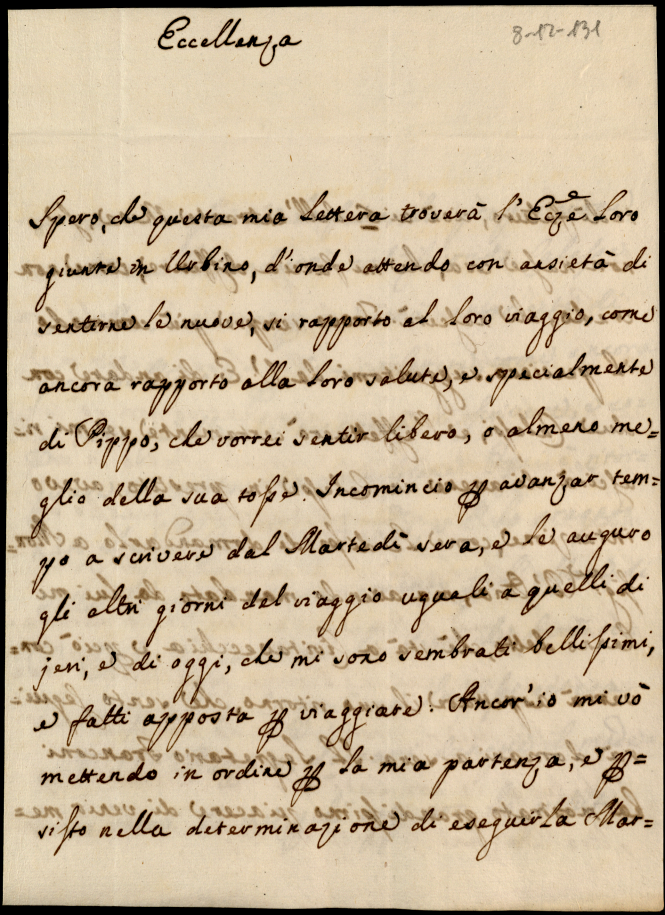 Eccellenza
8-12-131
Spero, che questa mia Lettera troverà l'Ecz̄e Loro
giunte in Urbino, d'onde attendo con ansietà di
sentirne le nuove, si rapporto al loro viaggio, come
ancora rapporto alla loro salute, e specialmente
di Pippo, che vorrei sentir libero, o almeno me=
glio della sua toſse. Incomincio ꝑ avanzar tem=
po a scrivere dal Martedì sera, e le auguro
gli altri giorni del viaggio uguali a quelli di
jeri, e di oggi, che mi sono sembrati belliſsimi,
e fatti apposta ꝑ viaggiare. Ancor'io mi vò
mettendo in ordine ꝑ la mia partenza, e ꝑ=
siſto nella determinazione di eseguirla Mar=